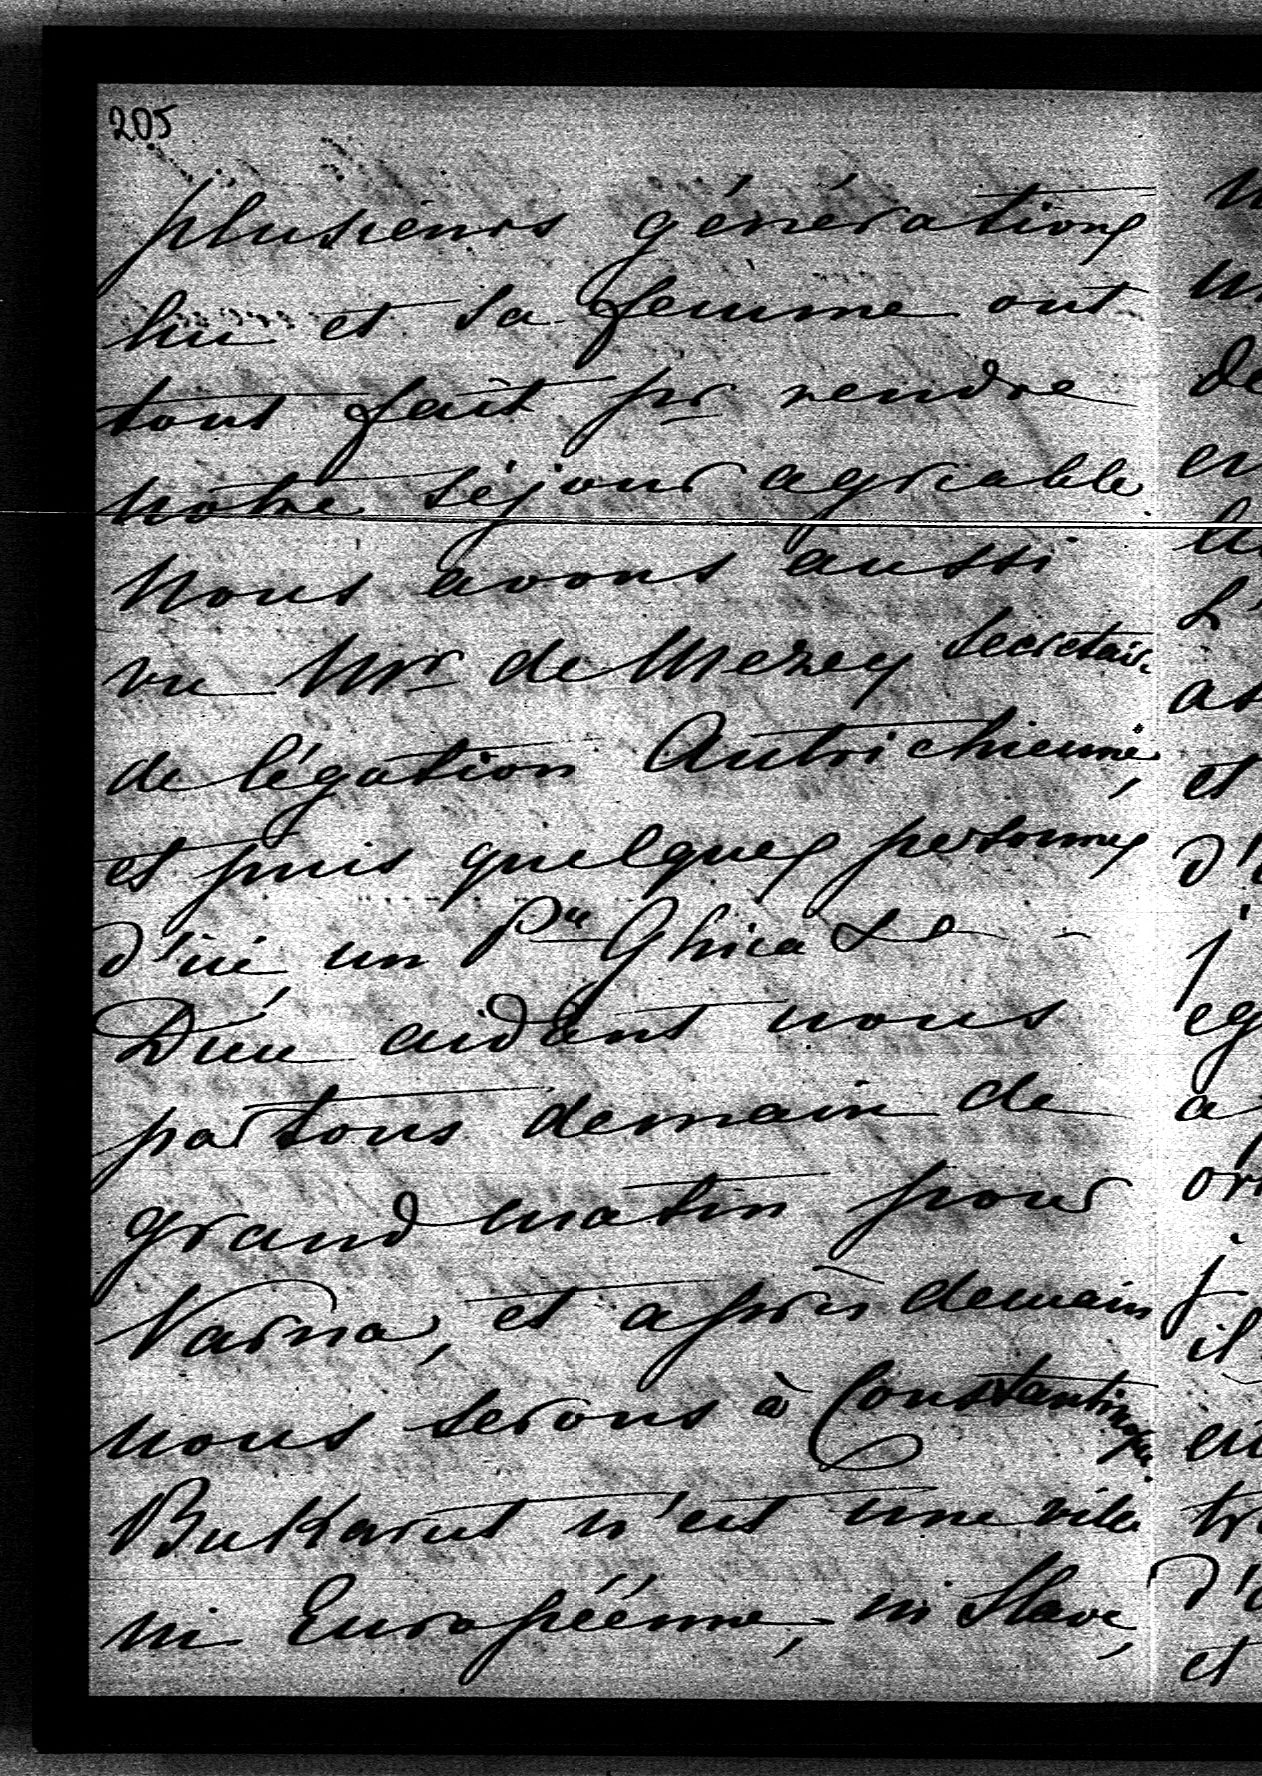 205
plusieurs générations
lui et sa femme ont
tout fait pr rendre
notre séjour agréable
Nous avons aussi
vu Mr de Merey Secretaire
de légation Autrichienne,
et puis quelques personnes
d'ici un Pce Ghica
Dieu aidant nous
partons demain de
grand matin pour
Varna, et après demain
nous serons à Constantinople.
Bukarest n'est une ville
ni Européénne, ni Slave,